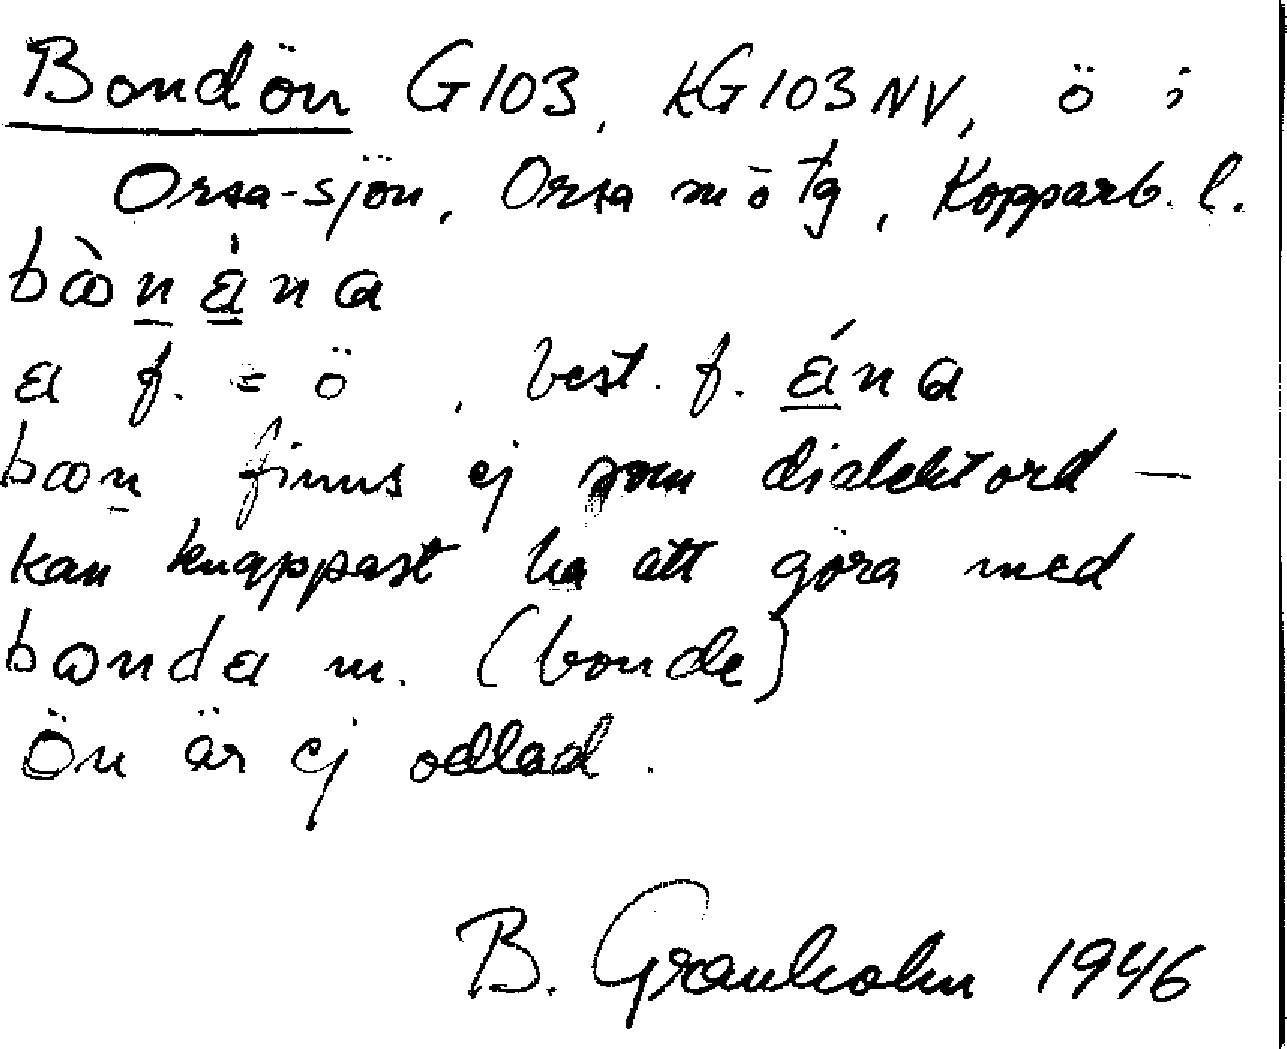 Bondön G103, kG103NV, ö i
Orsa-sjön, Orsa m o tg, Kopparb. l.
bὼn ána
a f. = ö, best. f. ána
bωn finns ej som dialektord —
kan knappast ha att göra med
bωnda m. (bonde)
Ön är ej odlad.
B. Granholm 1946